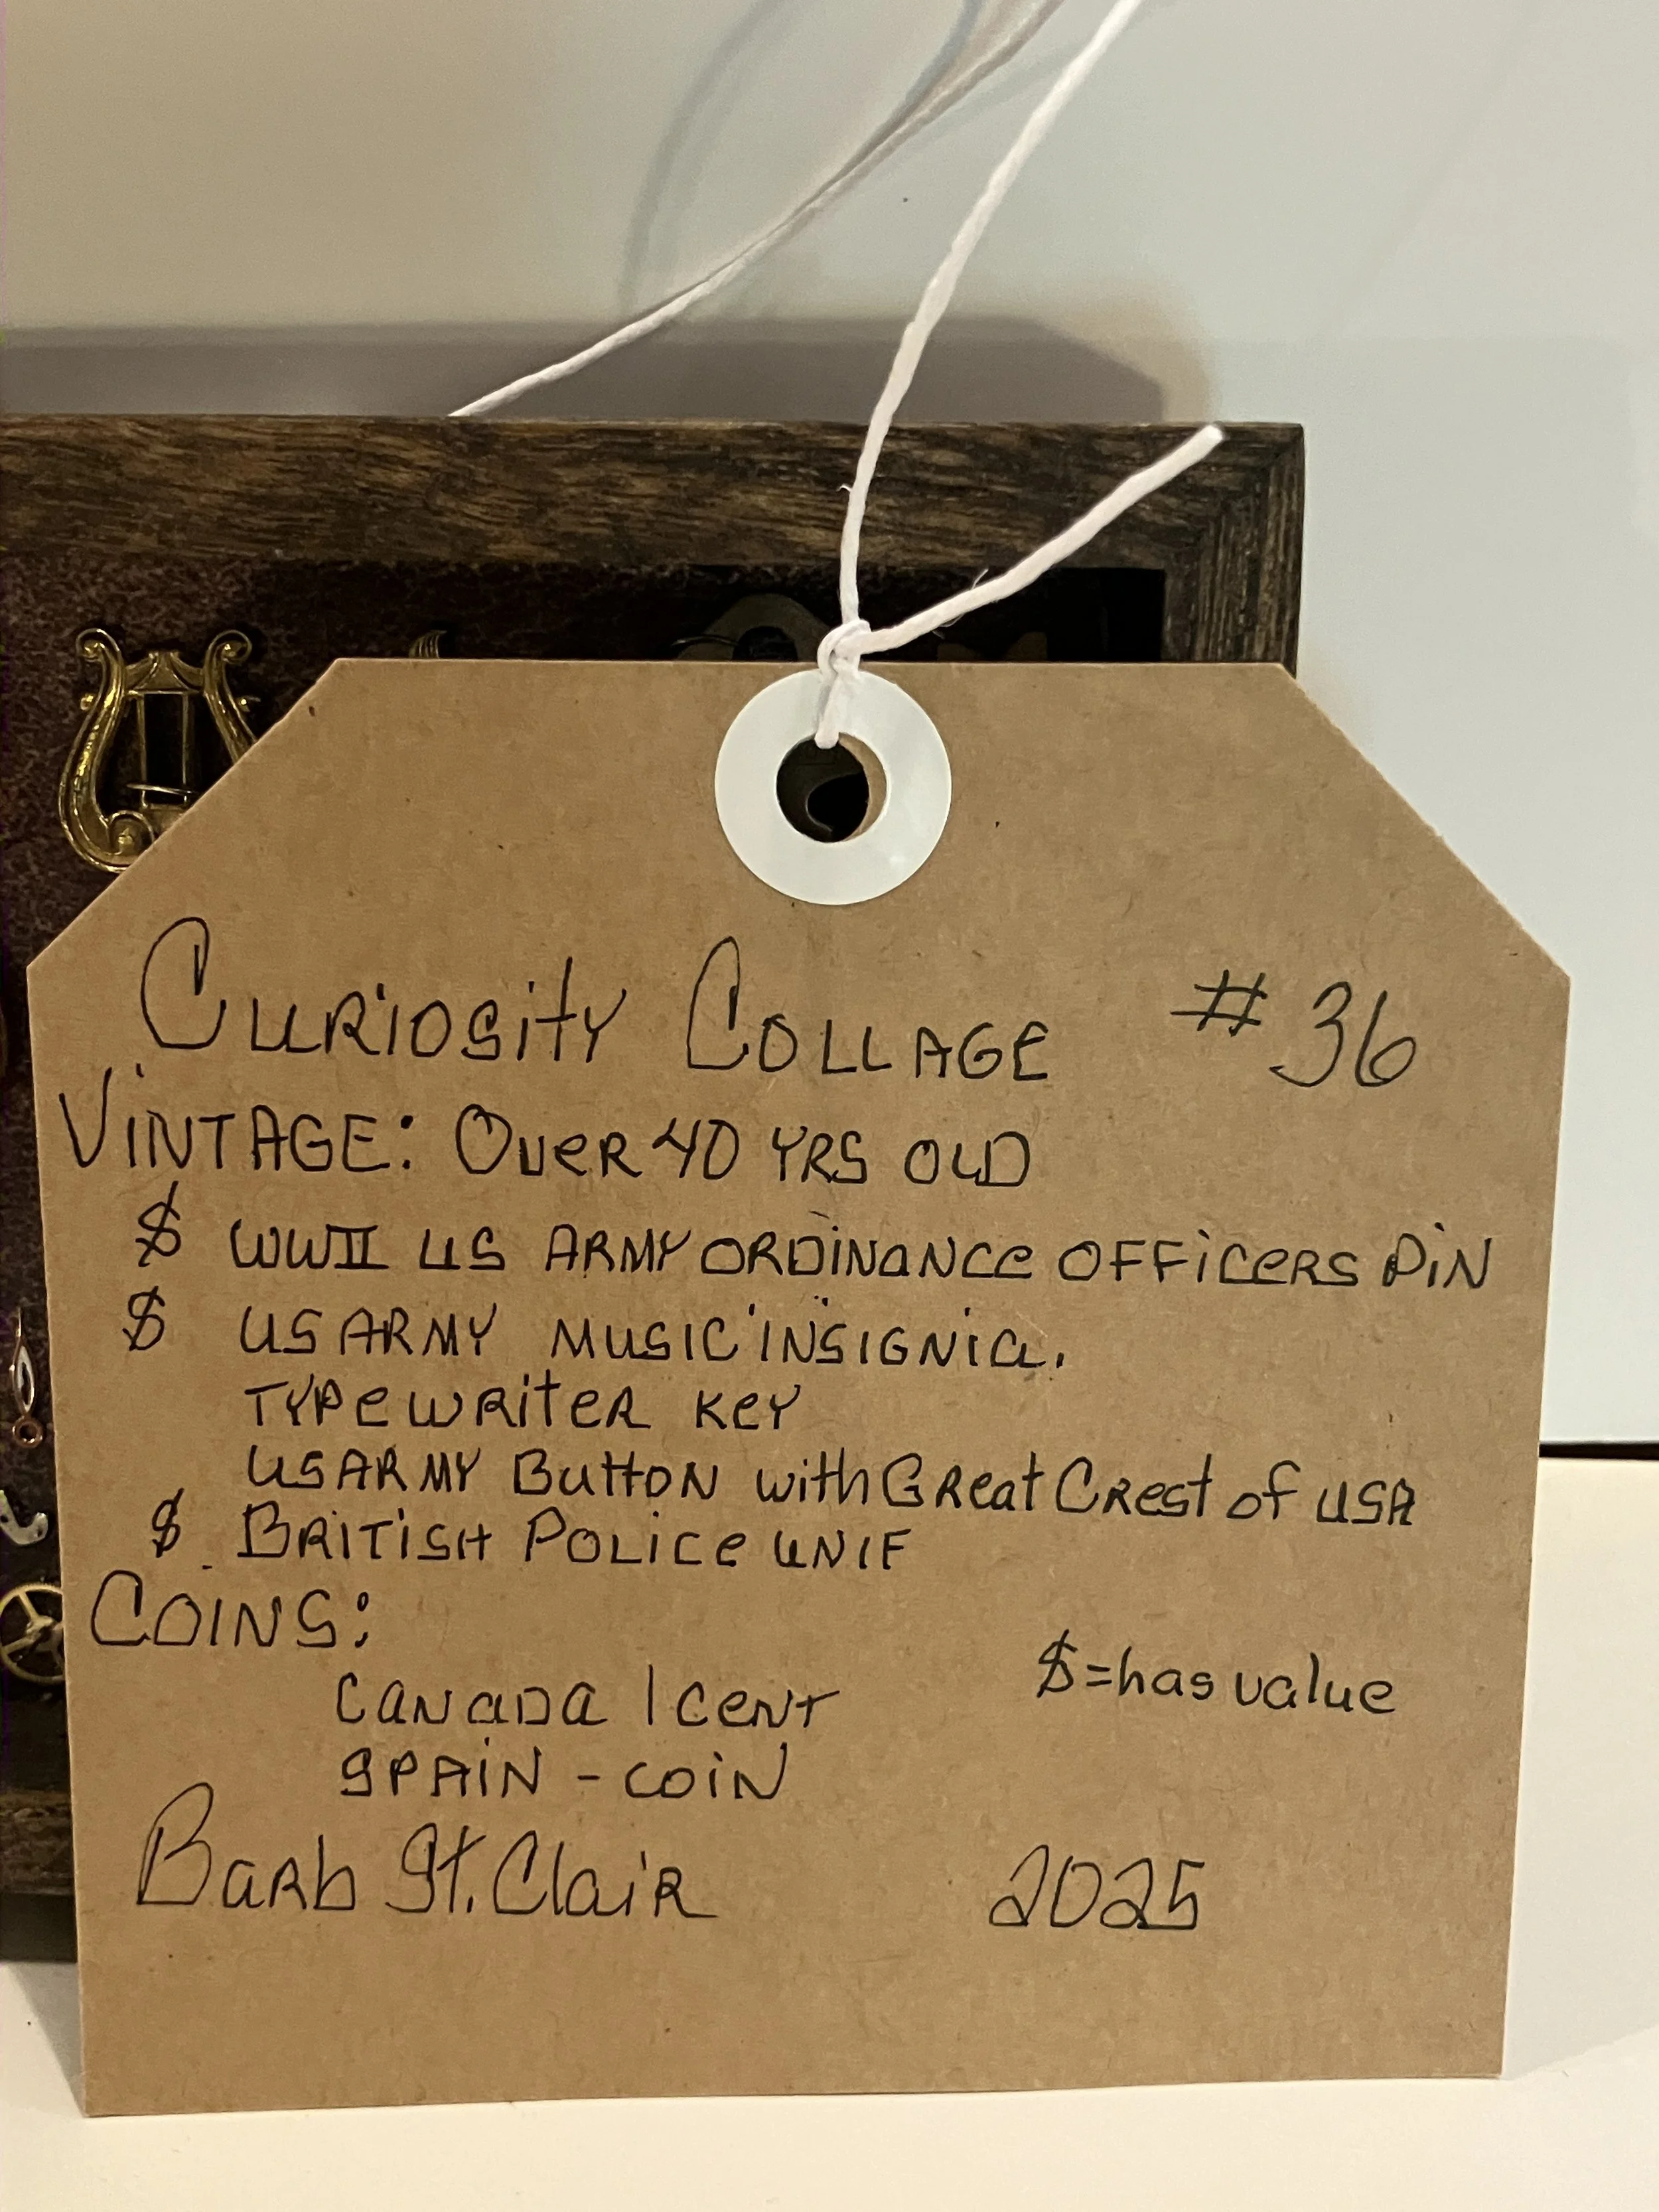 Curiosity Collage # 36
Vintage: Over 40 YRS OLD
$ WWII US ARMY ORDINANCE OFFICERS PIN
$ US ARMY MUSIC INSIGNIA.
TYPEWRITER KEY
US ARMY Button with Great Crest of USA
$ British Police UNIF
Coins:
$=has value
CANADA 1 cent
SPAIN - COIN
Barb St. Clair 2025